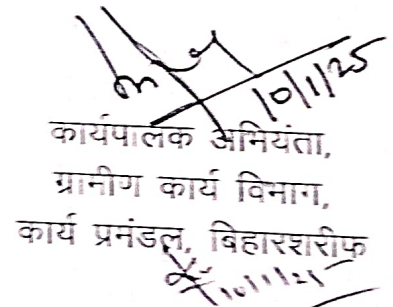 10/1/25
कार्यपालक अभियंता,
ग्रामीण कार्य विभाग,
कार्य प्रमंडल, बिहारशरीफ
10/1/25